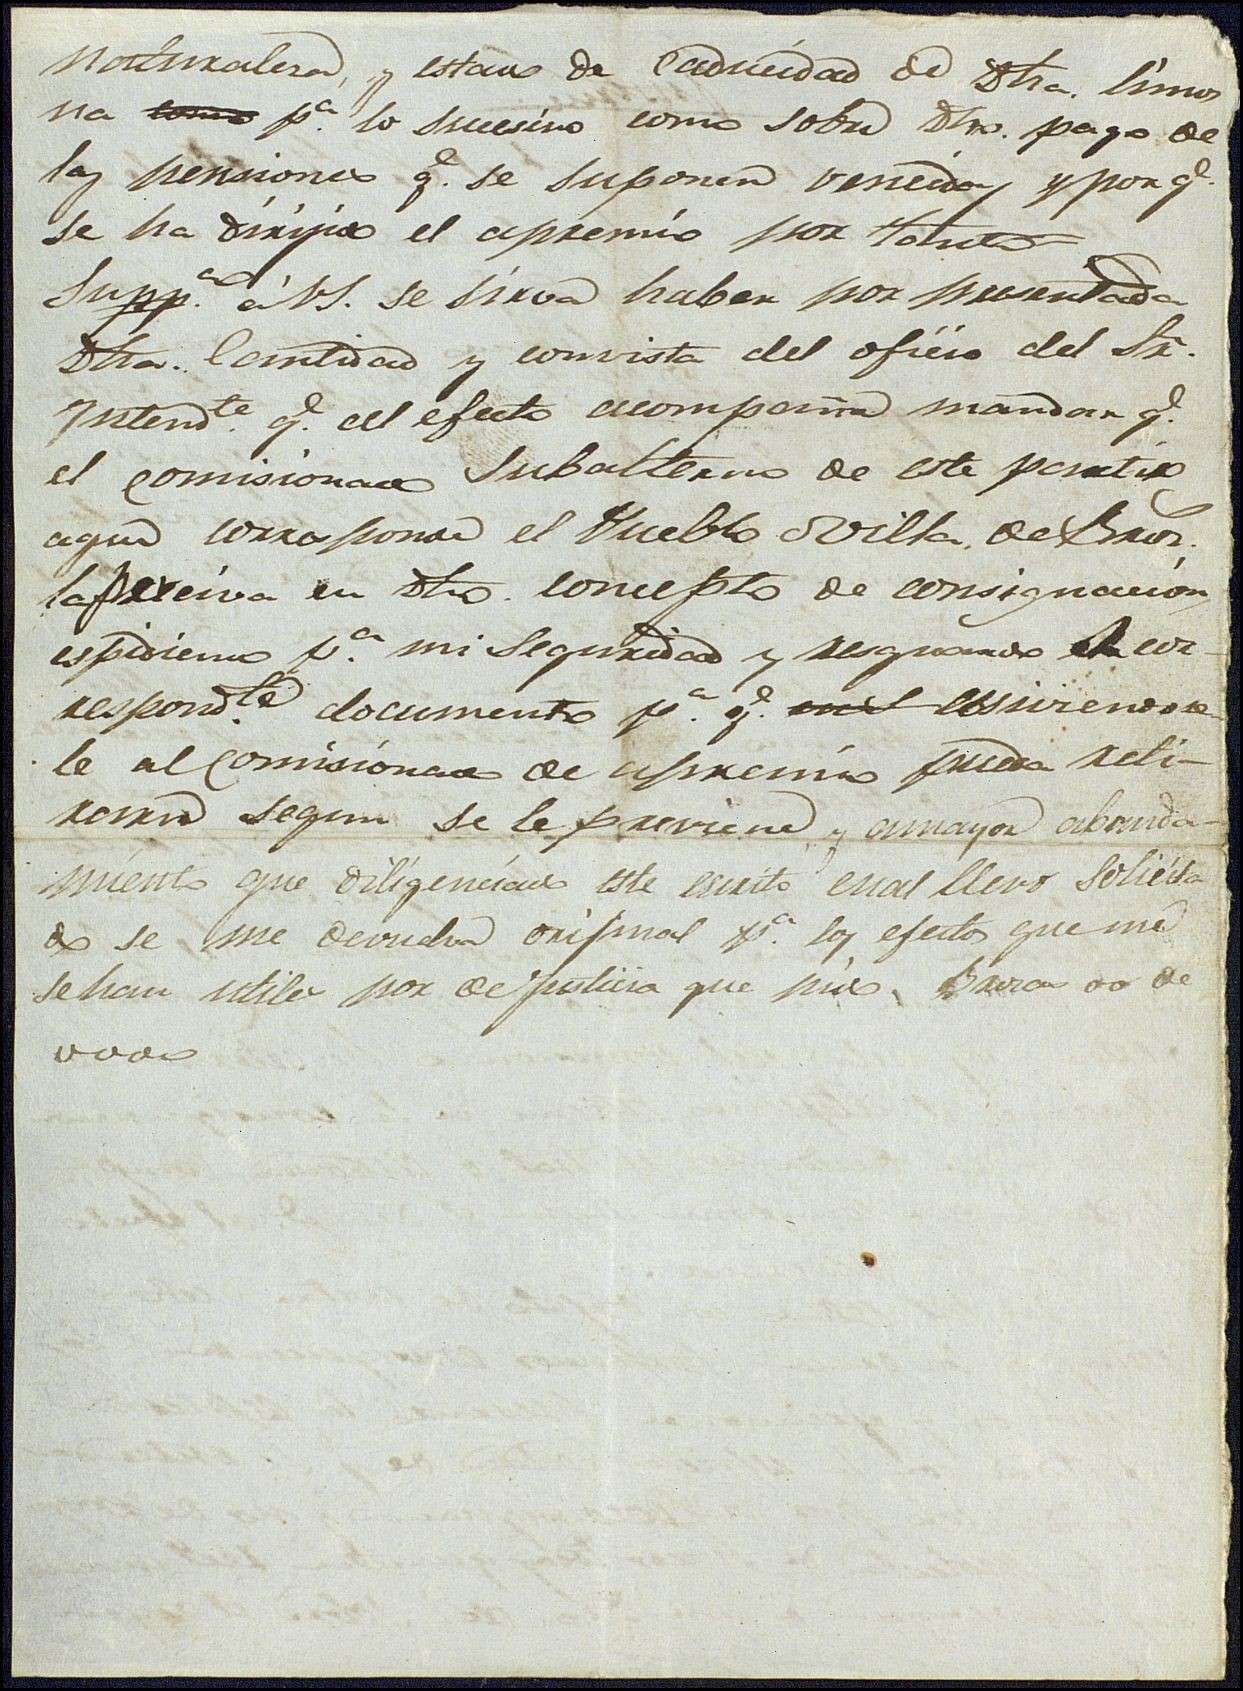 naturaleza, y estado de Caducidad de Dha. limos
na como pª. lo sucesivo como sobre Dho. pago de
las pensiones q.e se suponen vencidas y por q.e
se ha dirijido el apremio por tanto
Suppª. á VS. se sirva haber por presentada
Dha. Cantidad y con vista del oficio del Sr.
Intendte. q.e al efecto acompaña mandar q.e
el comisionado Subalterno de este partido
aque corresponde el Pueblo o Villa de
la perciva en Dho. concepto de consignacion,
espidiendo pª. mi Seguridad y resguardo el cor-
respondte. documento pª. q.e
le al Comisionado de apremio pueda reti-
rarse segun se le previene, y amayor abunda-
miento que diligenciado este escrito cual llevo Solicita
do se me devuelva original pª. los efectos que me
sehan utiles por de justicia que pido.